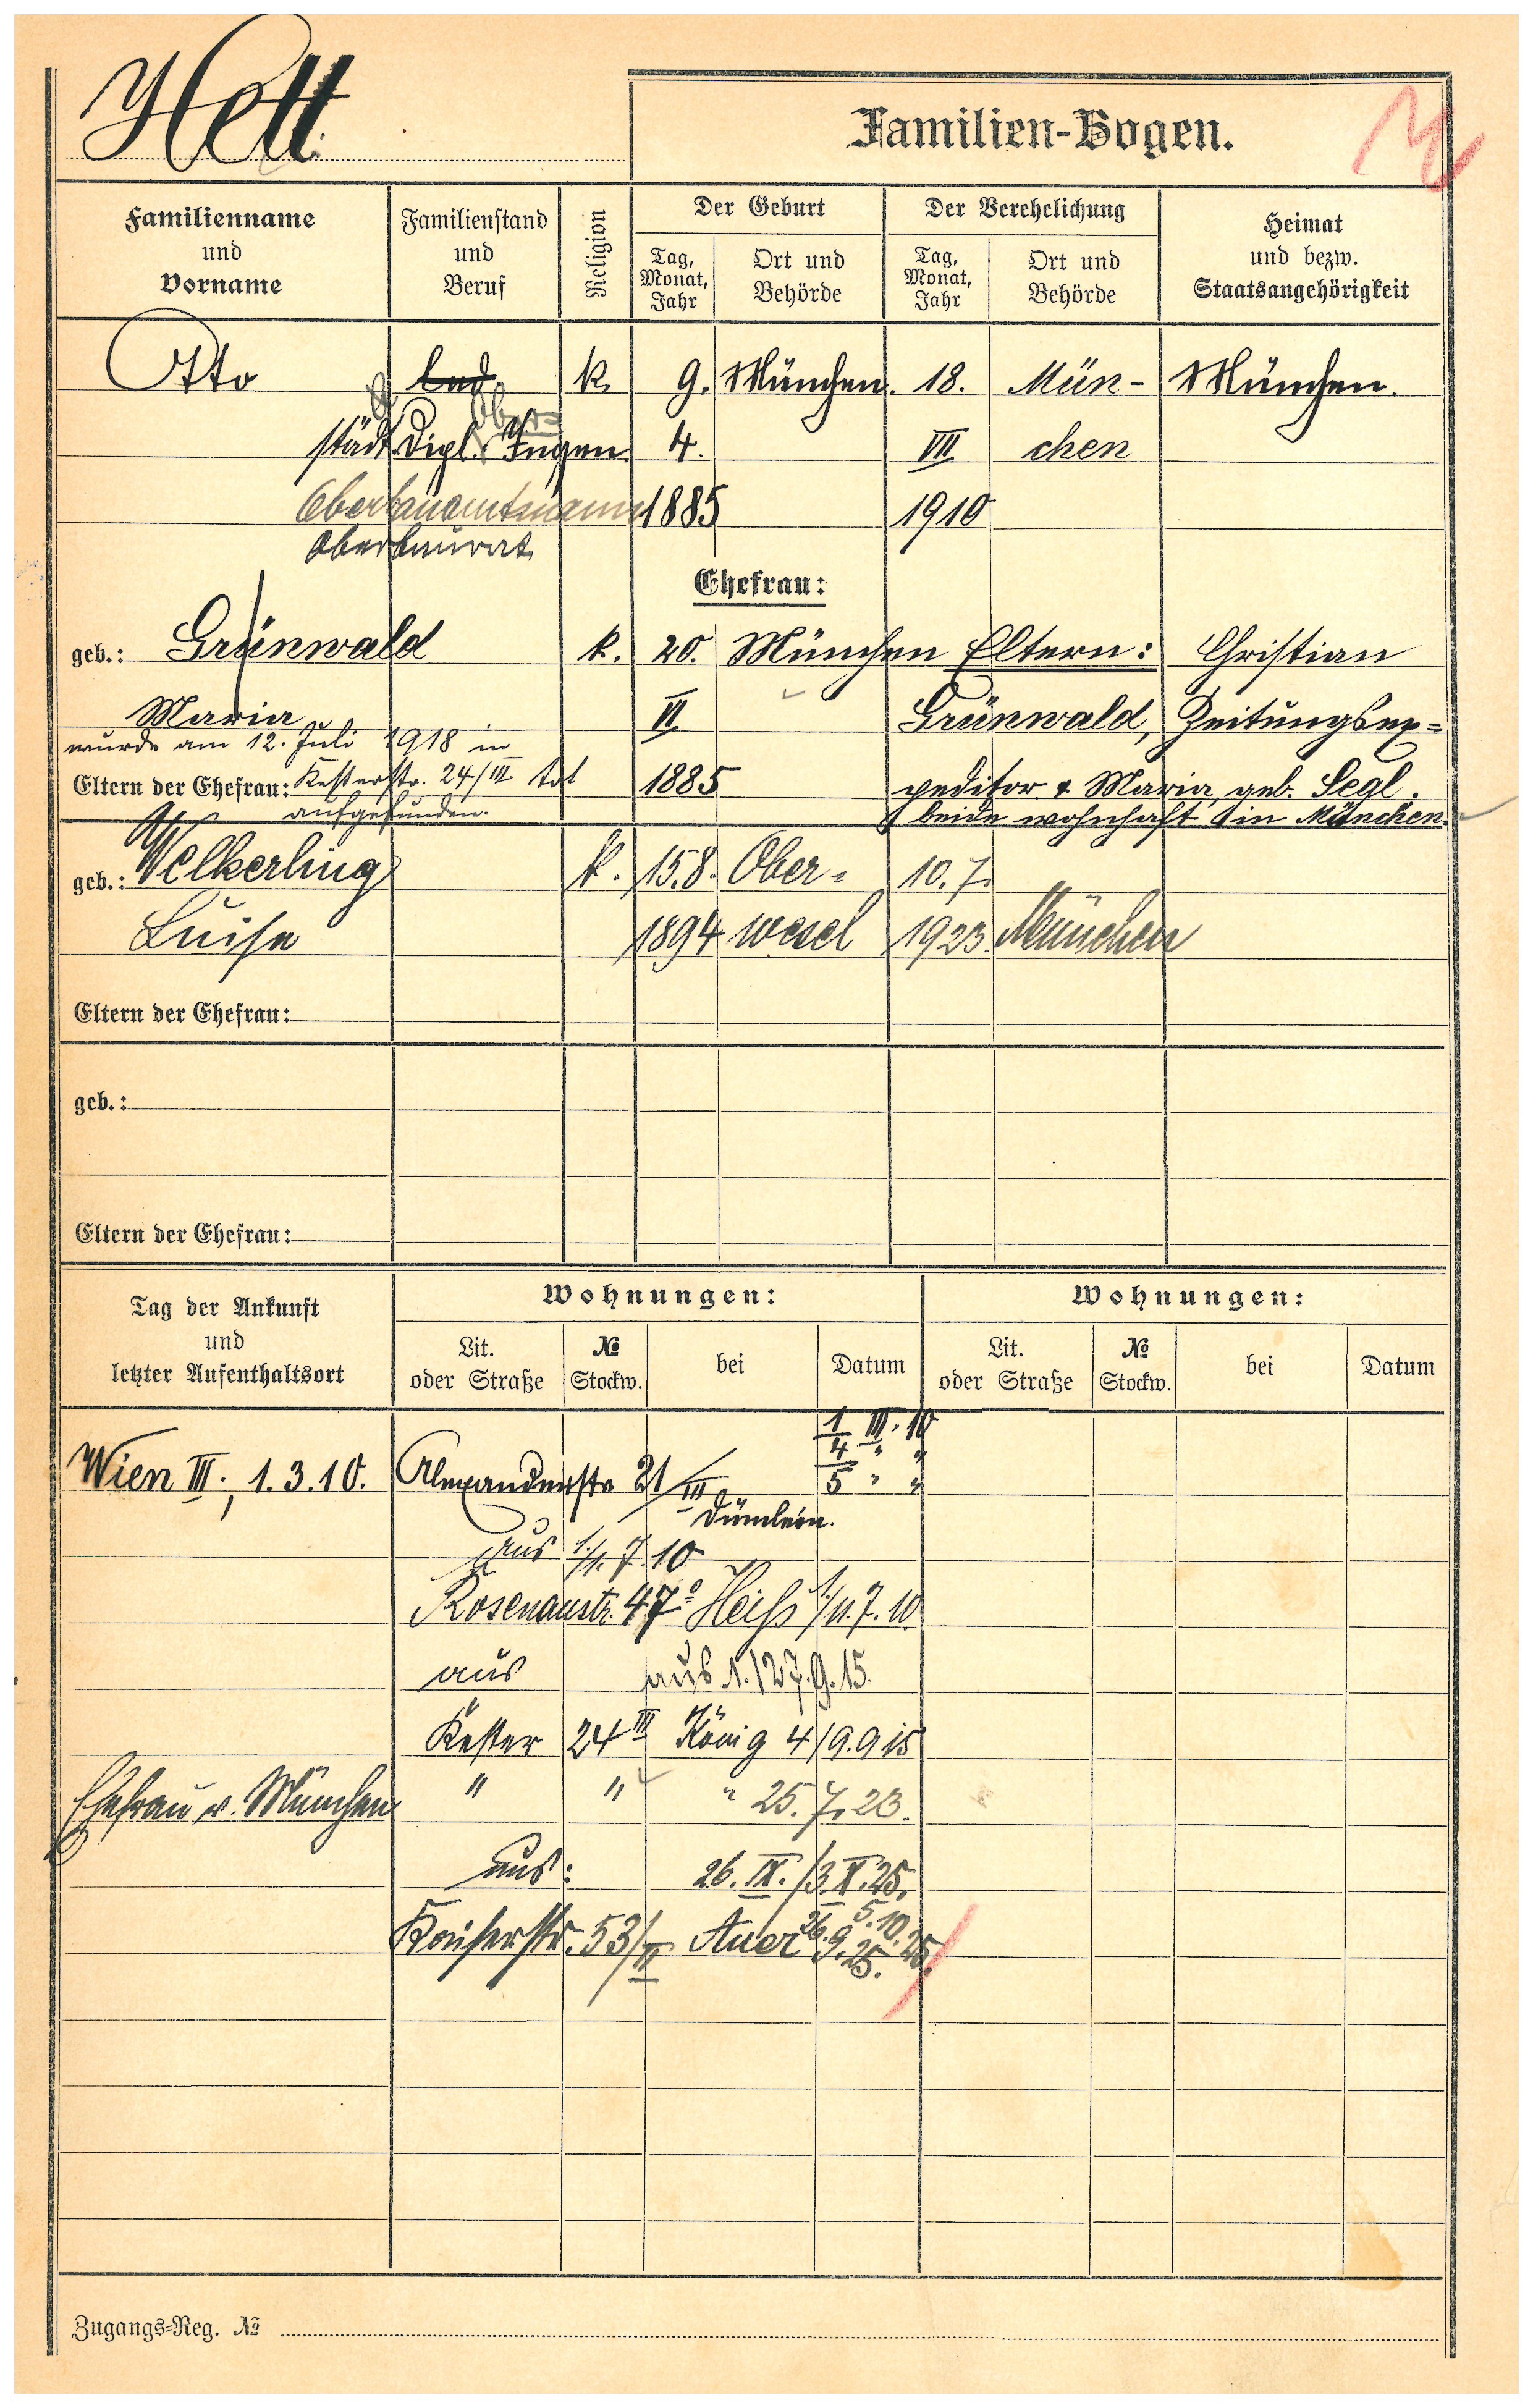 Hett.
Familien-Bogen.
Familienname und Vorname
Familienstand und Beruf
Religion
Der Geburt
Tag, Monat, Jahr
Ort und Behörde
Der Verehelichung
Tag, Monat, Jahr
Ort und Behörde
Heimat und bezw. Staatsangehörigkeit
Otto led. k. 9. München. 18. Mün- München.
Ober=
städt. Dipl. Ingen. 4. VII. chen
Oberbauamtmann 1885 1910
Oberbaurat
Ehefrau:
geb.: Grünwald k. 20. München Eltern: Christian
Maria VI Grünwald, Zeitungsex=
wurde am 12. Juli 1918 in
Eltern der Ehefrau: Kesterstr. 24/III tot 1885 peditor & Maria, geb. Segl.
aufgefunden. beide wohnhaft in München.
geb.: Welkerling k. 15.8. Ober= 10.7.
Luise 1894 wesel 1923. München
Eltern der Ehefrau:
geb.:
Eltern der Ehefrau:
Tag der Ankunft und letzter Aufenthaltsort
Wohnungen:
Lit. oder Straße
№ Stockw.
bei
Datum
Wohnungen:
Lit. oder Straße
№ Stockw.
bei
Datum
1 III. 10
4 " "
Wien III., 1.3.10. Alexanderstr 21/III 5 " "
Dümlein.
aus 1./1. 7 10
Rosenaustr. 47° Heiß 1/11.7.10.
aus aus 1./27.9.15.
Kester 24 III König 4/9.9 15
Ehefrau v. München " " " 25.7.23.
aus: 26. IX. /3.X.25.
5.10.25.
Kaiserstr. 53/II Auer 26.9.25.
Zugangs-Reg. №